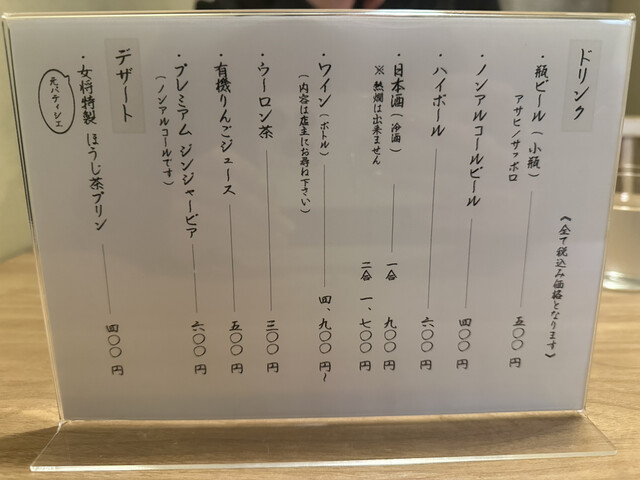 ドリンク
《全て税込み価格となります》
・瓶ビール（小瓶） 五〇〇円
アサヒ／サッポロ
・ノンアルコールビール 四〇〇円
・ハイボール 六〇〇円
・日本酒（冷酒） 一合 九〇〇円
※熱燗は出来ません 二合 一、七〇〇円
・ワイン（ボトル） 四、九〇〇円〜
（内容は店主にお尋ね下さい）
・ウーロン茶 三〇〇円
・有機りんごジュース 五〇〇円
・プレミアム ジンジャービア 六〇〇円
（ノンアルコールです）
デザート
・女将特製 ほうじ茶プリン 四〇〇円
元パティシエ